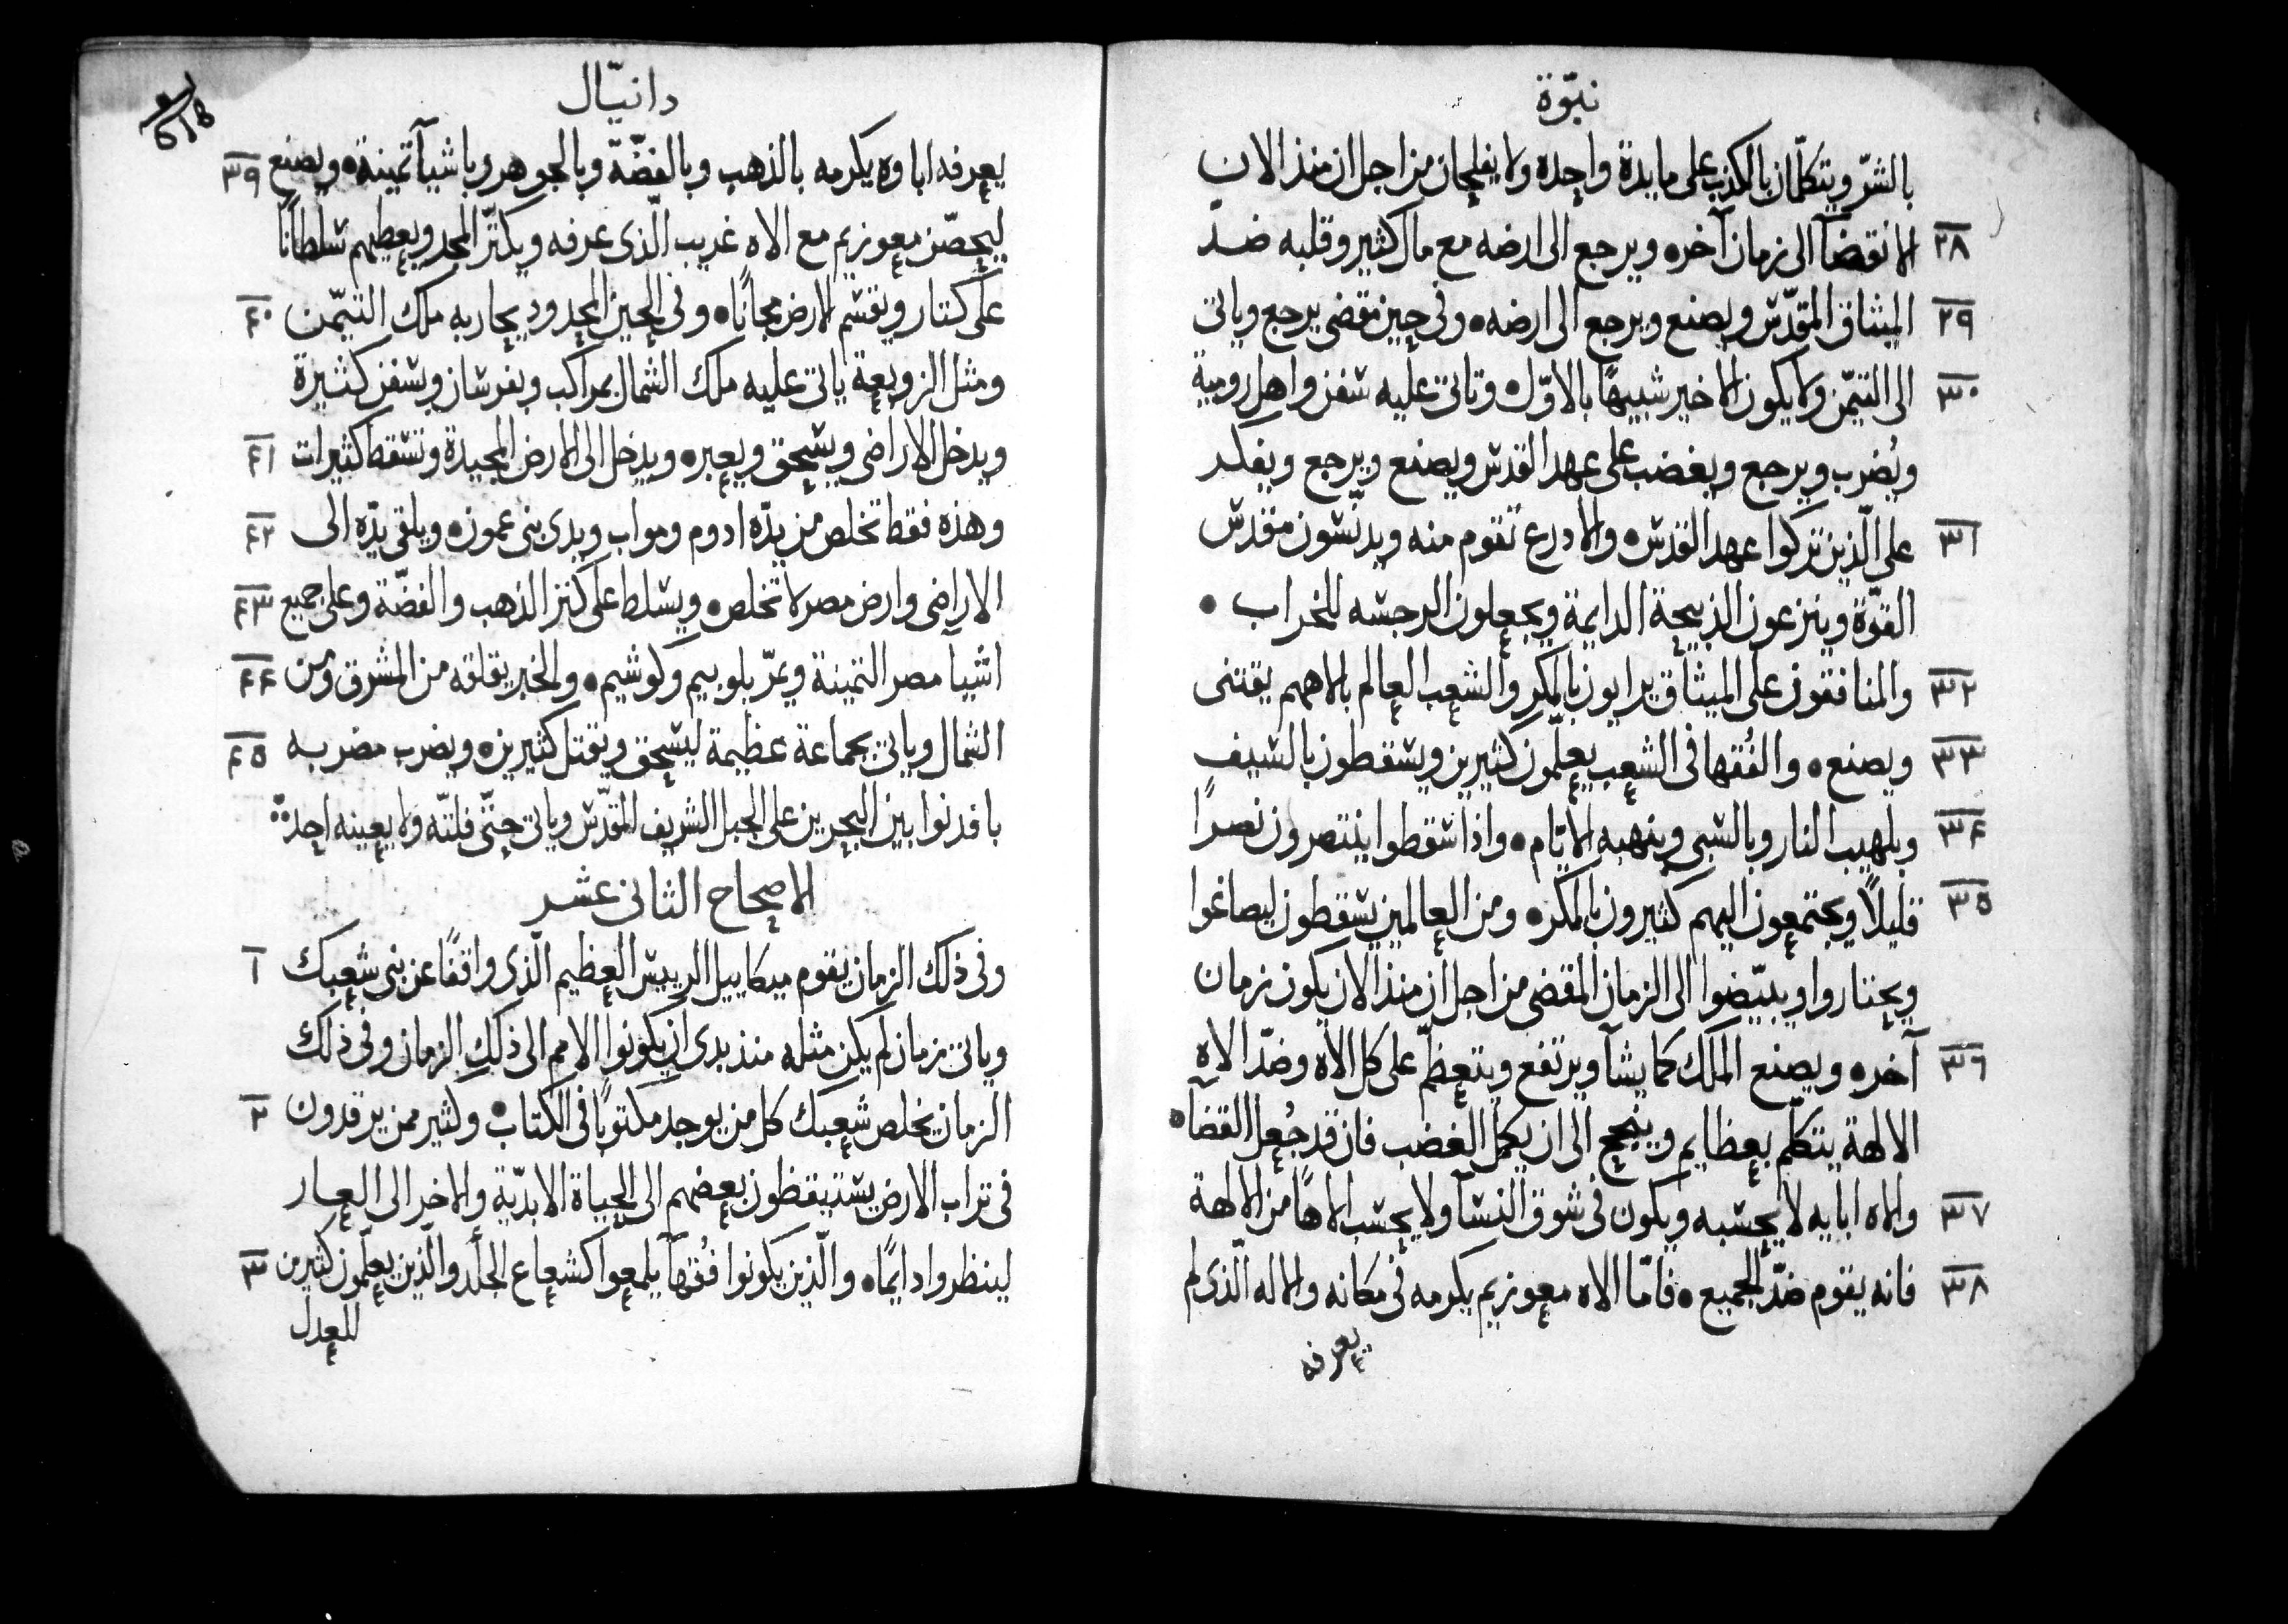 نبوّة
بالشرّ ويتكلّمان بالكذب على مايدة واحده ولا يفلحان من اجل ان منذ الان
٢٨ الانقضآ الى زمان آخره ويرجع الى ارضه مع مال كثير وقلبه ضد
٢٩ الميثاق المقدّس ويصنع ويرجع الى ارضه • وفى حين مقضى يرجع وياتى
٣٠ الى التيمّن ولا يكون الاخير شبيهًا بالاوّل • وتاتى عليه سفن واهل رومية
ويُضرب ويرجع ويغضب على عهد القدس ويصنع ويرجع ويفكر
٣١ على الّذين تركوا عهد القدس • والادرع تقوم منه ويدنّسون مقدس
القوّة وينزعون الذبيحة الدايمة ويجعلون الرجسه للخراب •
٣٢ والمنافقون على الميثاق يرايون بالمكر والشعب العالم بالاههم يقتنى
٣٣ ويصنع • والفُقها فى الشعب يعلّمون كثيرين ويسقطون بالسيف
٣٤ وبلهيب النار وبالسبى وبنهبه الايّام • واذا سقطوا ينتصرون نصرًا
٣٥ قليلاً ويجتمعون اليهم كثيرون بالمكر • ومن العالمين يسقطون ليصاغوا
ويختاروا ويبيّضوا الى الزمان المقضى من اجل ان منذ الان يكون زمان
٣٦ آخر • ويصنع الملك كما يشآ ويرتفع ويتعظّم على كل الاه وضدّ الاه
الالهة يتكلّم بعظايم وينجح الى ان يكمل الغضب فان قد جُعل القضآ •
٣٧ والاه ابايه لا يحسبه ويكون فى شوق النسآ ولا يحسب الاهًا من الالهة
٣٨ فانه يقوم ضدّ الجميع • فامّا الاه معوزيم يكرمه فى مكانه والاله الّذى لم
يعرفه
دانيّال
يعرفه اباوه يكرمه بالذهب وبالفضّة وبالجوهر وباشيآ تمينة • ويصنع ٣٩
ليحصّن معوزيم مع الاه غريب الّذى عرفه ويكثّر المجد ويعطيهم سلطانًا
على كتار ويقسم الارض مجانًا • وفى الحين المحدود يحاربه ملك التيمّن ٤٠
ومثل الزوبعة ياتى عليه ملك الشمال بمراكب وبفرسان وبسفن كثيرة
ويدخل الاراضى ويسحق ويعبر • ويدخل الى الارض المجيدة وتسقط كثيرات ٤١
وهذه فقط تخلص من يدّه ادوم ومواب وبدى بنى عمون • ويلقى يدّه الى ٤٢
الاراضى وارض مصر لا تخلص • ويسلط على كنز الذهب والفضّة وعلى جميع ٤٣
اشيآ مصر التمينة ويمرّ بلوبيم وكوشيم • والخبر يقلقه من المشرق ومن ٤٤
الشمال وياتى بجماعة عظيمة ليسحق ويقتل كثيرين • ويضرب مضربه ٤٥
بافدنوا بين البحرين على الجبل الشريف المقدّس وياتى حتّى قلتّه ولا يعينه احد
الاصحاح الثانى عشر
وفى ذلك الزمان يقوم ميكاييل الرييس العظيم الّذى واقفًا عن بنى شعبك ١
وياتى زمان لم يكن مثله منذ بدى ان يكونوا الامم الى ذلك الزمان وفى ذلك
الزمان يخلص شعبك كل من يوجد مكتوبًا فى الكتاب • وكثير ممن يرقدون ٢
فى تراب الارض يستيقظون بعضهم الى الحياة الابديّة والاخر الى العار
لينظروا دايمًا • والّذين يكونوا فُقهآ يلمعوا كشعاع الجلد والّذين يعلّمون كثيرين ٣
للعدل